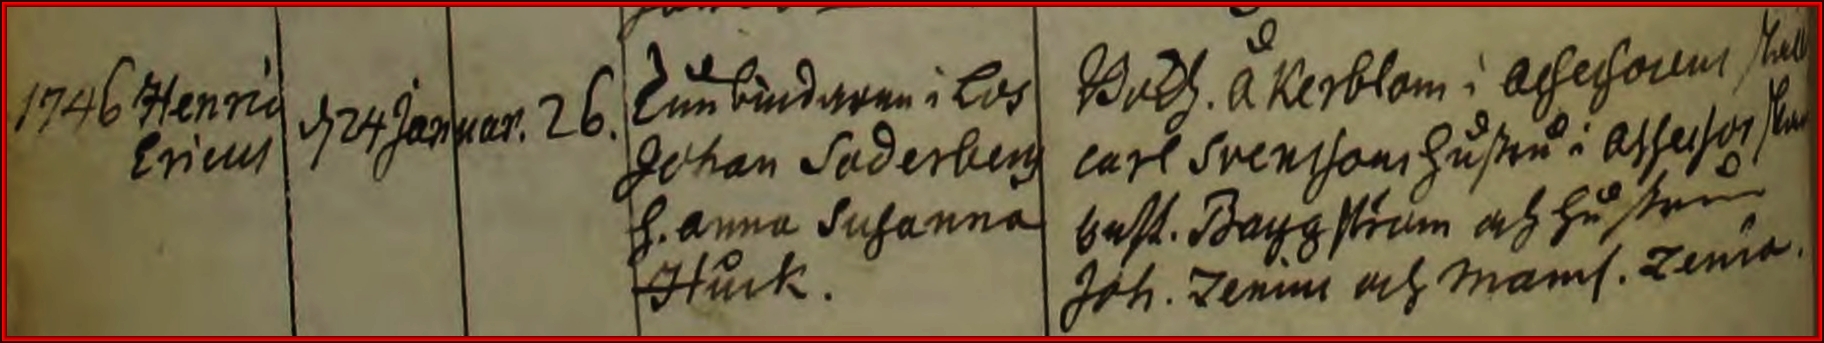 1746 Henric
Ericus
d 24 Januar. 26.
Tunbindaren i Los
Johan Söderberg
h. Anna Susanna
Huck.
Åkerblom i
Carl Svenssons hustru i Assessor
Bergström och hustru
Joh. Zenius och Mams. Zenia.